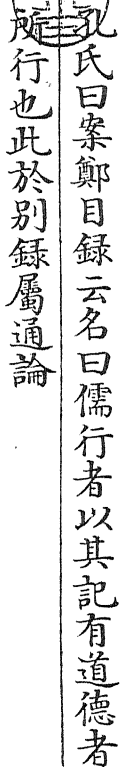 孔氏曰案鄭目録云名曰儒行者以其記有道德者
所行也此於别録屬通論